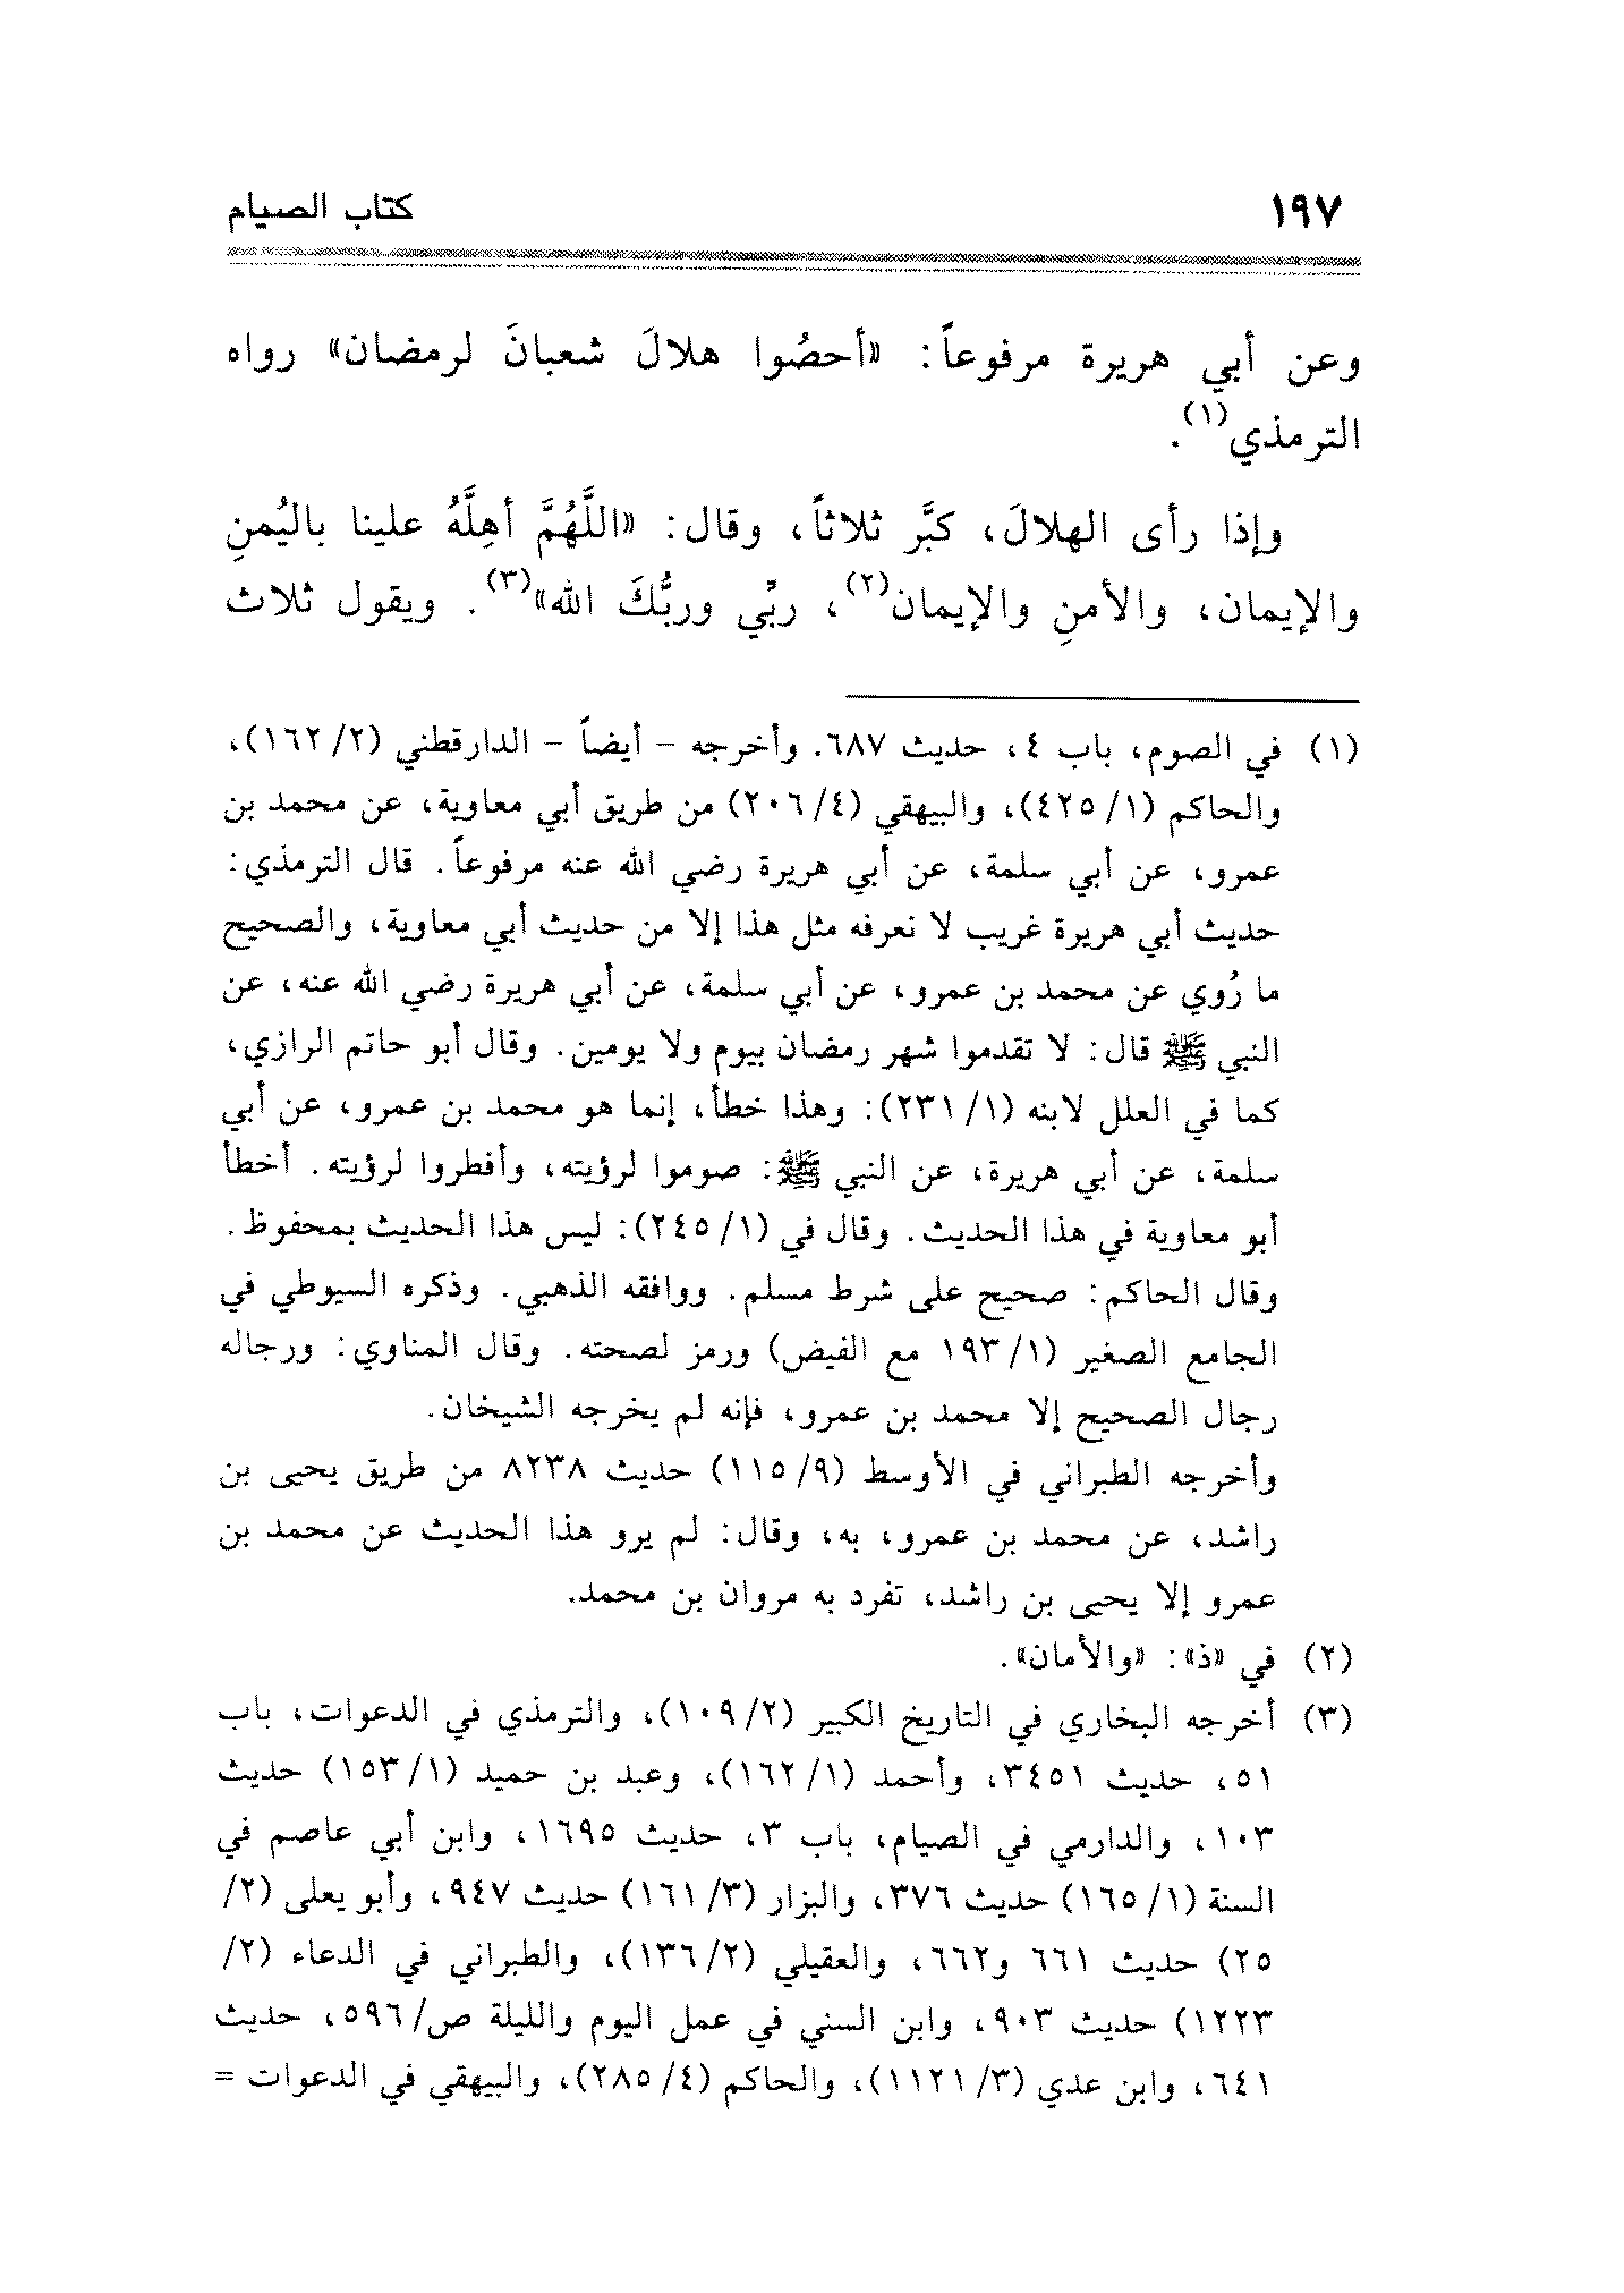 ١٩٧ كتاب الصيام
وعن أبي هريرة مرفوعاً: «أحصُوا هلالَ شعبانَ لرمضان» رواه
الترمذي(١).
وإذا رأى الهلالَ، كبَّر ثلاثاً، وقال: «اللَّهُمَّ أهِلَّهُ علينا باليُمنِ
والإيمان، والأمنِ والإيمان(٢)، ربِّي وربُّكَ الله»(٣). ويقول ثلاث
(١) في الصوم، باب ٤، حديث ٦٨٧. وأخرجه - أيضاً - الدارقطني (٢/ ١٦٢)،
والحاكم (١/ ٤٢٥)، والبيهقي (٤/ ٢٠٦) من طريق أبي معاوية، عن محمد بن
عمرو، عن أبي سلمة، عن أبي هريرة رضي الله عنه مرفوعاً. قال الترمذي:
حديث أبي هريرة غريب لا نعرفه مثل هذا إلا من حديث أبي معاوية، والصحيح
ما رُوي عن محمد بن عمرو، عن أبي سلمة، عن أبي هريرة رضي الله عنه، عن
النبي ﷺ قال: لا تقدموا شهر رمضان بيوم ولا يومين. وقال أبو حاتم الرازي،
كما في العلل لابنه (١/ ٢٣١): وهذا خطأ، إنما هو محمد بن عمرو، عن أبي
سلمة، عن أبي هريرة، عن النبي ﷺ: صوموا لرؤيته، وأفطروا لرؤيته. أخطأ
أبو معاوية في هذا الحديث. وقال في (١/ ٢٤٥): ليس هذا الحديث بمحفوظ.
وقال الحاكم: صحيح على شرط مسلم. ووافقه الذهبي. وذكره السيوطي في
الجامع الصغير (١/ ١٩٣ مع الفيض) ورمز لصحته. وقال المناوي: ورجاله
رجال الصحيح إلا محمد بن عمرو، فإنه لم يخرجه الشيخان.
وأخرجه الطبراني في الأوسط (٩/ ١١٥) حديث ٨٢٣٨ من طريق يحيى بن
راشد، عن محمد بن عمرو، به، وقال: لم يرو هذا الحديث عن محمد بن
عمرو إلا يحيى بن راشد، تفرد به مروان بن محمد.
(٢) في «ذ»: «والأمان».
(٣) أخرجه البخاري في التاريخ الكبير (٢/ ١٠٩)، والترمذي في الدعوات، باب
٥١، حديث ٣٤٥١، وأحمد (١/ ١٦٢)، وعبد بن حميد (١/ ١٥٣) حديث
١٠٣، والدارمي في الصيام، باب ٣، حديث ١٦٩٥، وابن أبي عاصم في
السنة (١/ ١٦٥) حديث ٣٧٦، والبزار (٣/ ١٦١) حديث ٩٤٧، وأبو يعلى (٢/
٢٥) حديث ٦٦١ و٦٦٢، والعقيلي (٢/ ١٣٦)، والطبراني في الدعاء (٢/
١٢٢٣) حديث ٩٠٣، وابن السني في عمل اليوم والليلة ص/ ٥٩٦، حديث
٦٤١، وابن عدي (٣/ ١١٢١)، والحاكم (٤/ ٢٨٥)، والبيهقي في الدعوات =